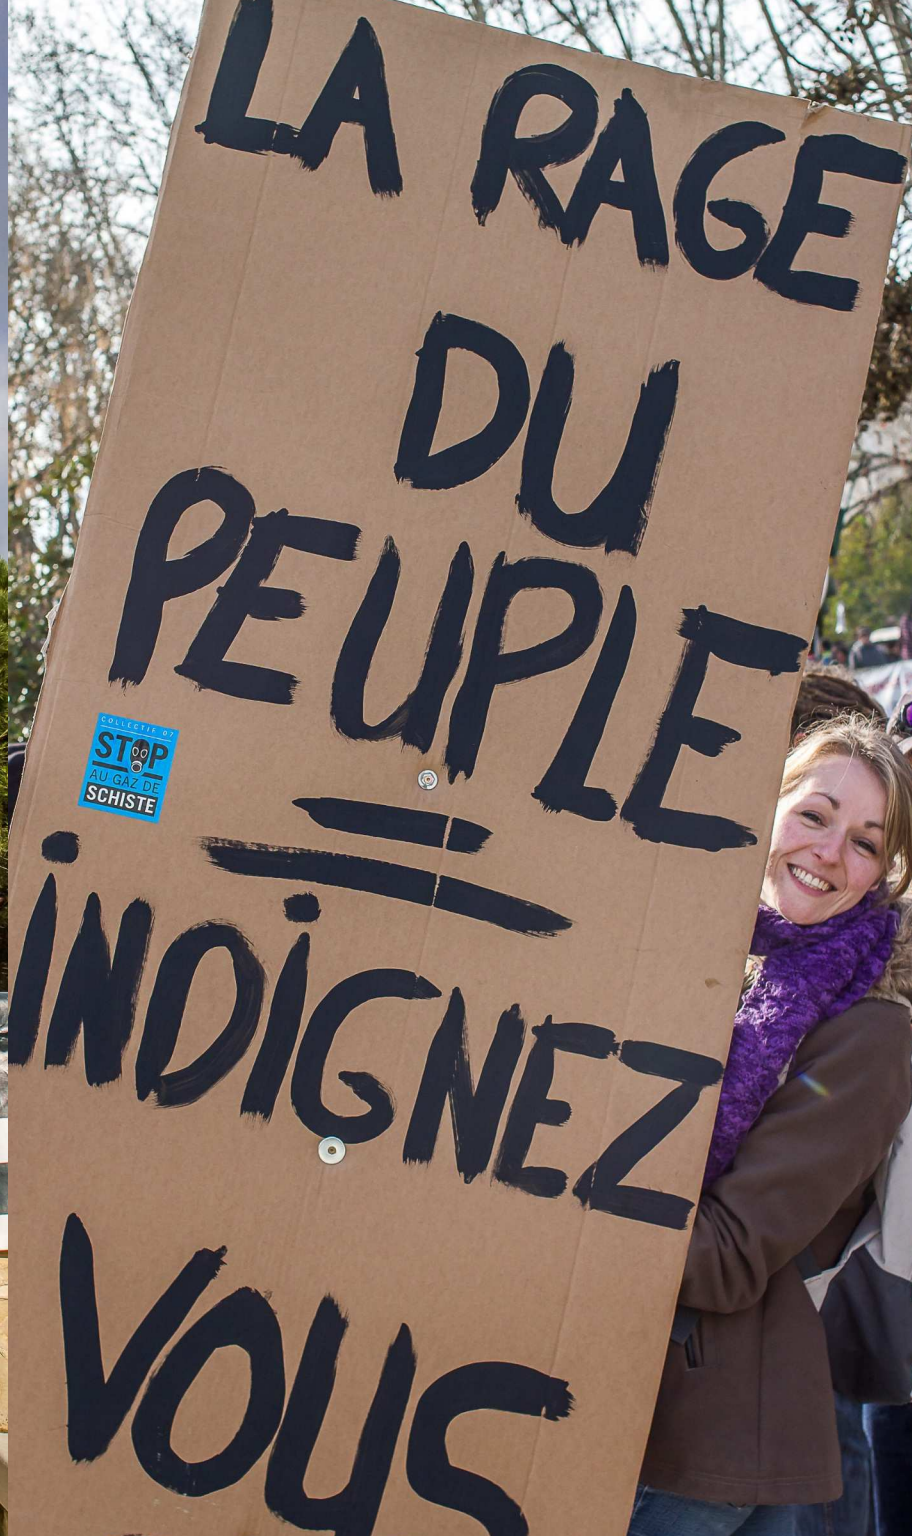 LA RAGE
DU
PEUPLE
COLLECTIF 07
STOP
AU GAZ DE
SCHISTE
=
iNDiGNEZ
VOUS